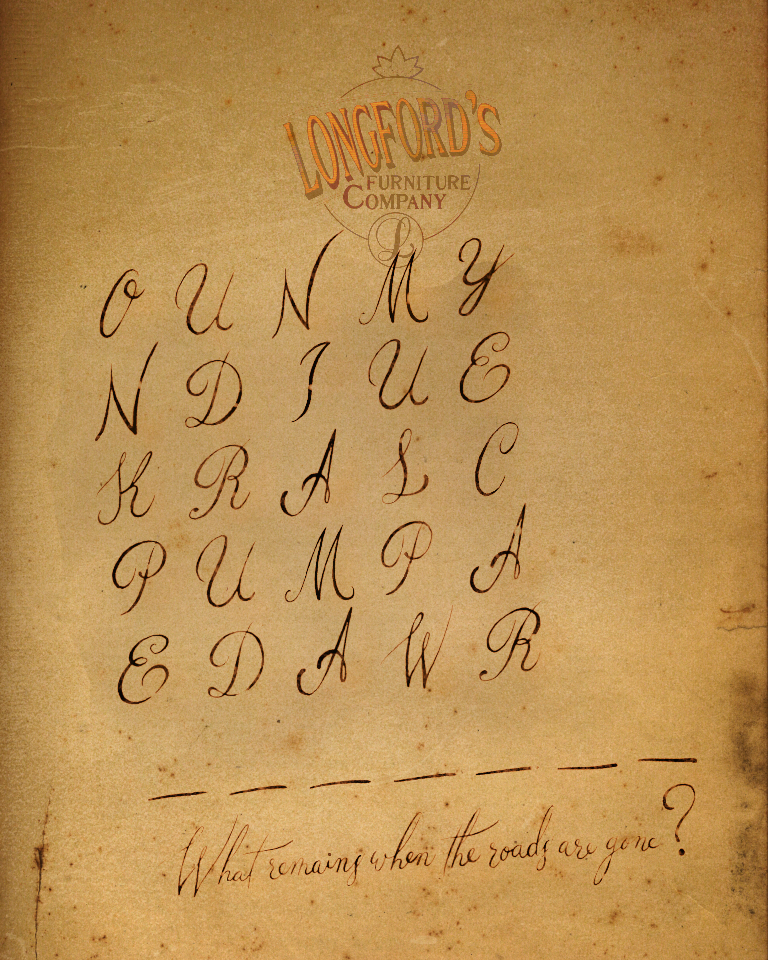 LONGFORD'S
FURNITURE
COMPANY
L
O U N M Y
N D I U E
K R A L C
P U M P A
E D A W R
What remains when the roads are gone?